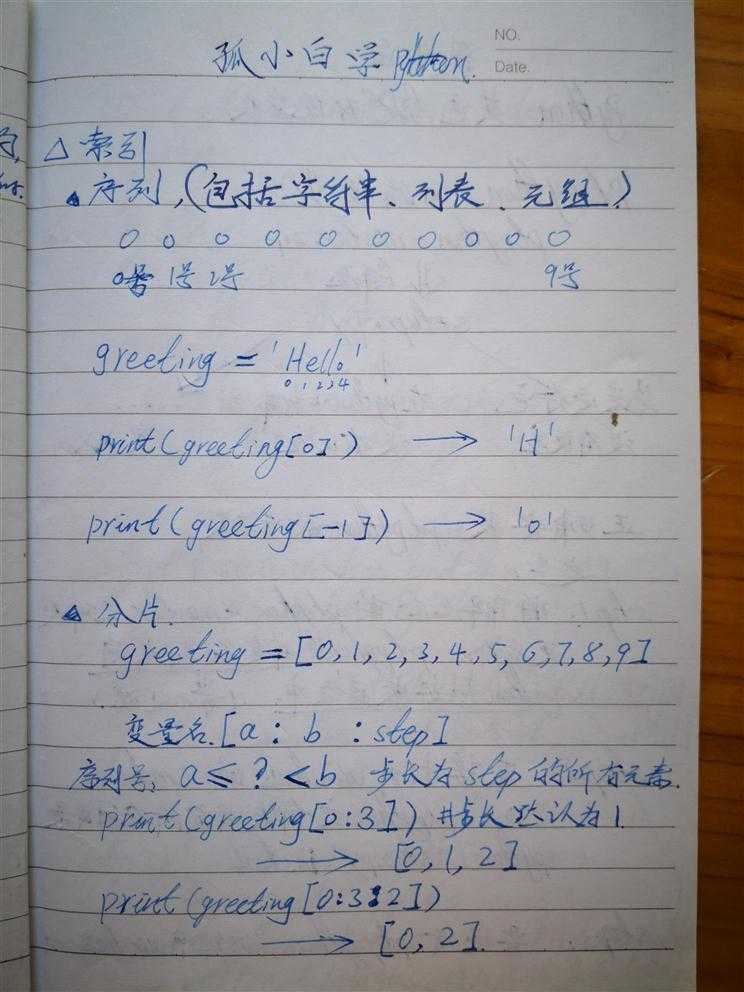 NO.
孤小白学 python.
Date.
△ 索引
▲ 序列,(包括字符串、列表、元组)
0 0 0 0 0 0 0 0 0 0
0号 1号 2号 9号
greeting = 'Hello'
0 1 2 3 4
print(greeting[0]) → 'H'
print(greeting[-1]) → 'o'
▲ 分片.
greeting = [0,1,2,3,4,5,6,7,8,9]
变量名.[a : b : step]
序列号: a≤ ? <b 步长为 step 的所有元素.
print(greeting[0:3]) #步长默认为1.
→ [0,1,2]
print(greeting[0:3:2])
→ [0,2].